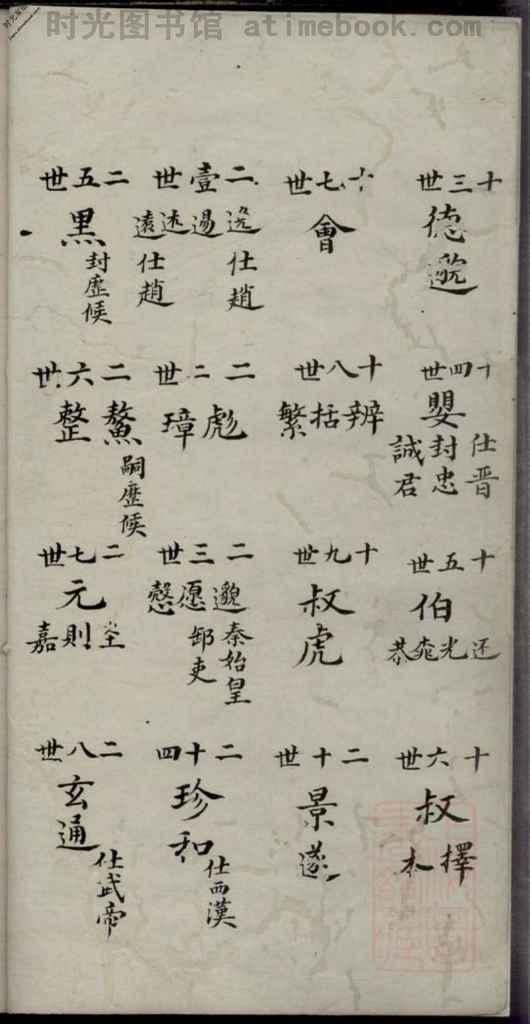 时光图书馆 atimebook.com
十三世
德邈
十四世
嬰
仕晋
封忠
誠君
十五世
伯
还光恭
十六世
叔
擇本
十七世
會
十八世
辨括繁
十九世
叔虎
二十世
景遂
二壹世
逸逷逺遠
仕趙
仕趙
二二世
彪璋
二三世
邈愿慤
秦始皇
郎吏
二十四
珍和
仕西漢
二五世
黑
封歷候
二六世
鰲整
嗣歷候
二七世
元
坒則嘉
二八世
玄通
仕武帝